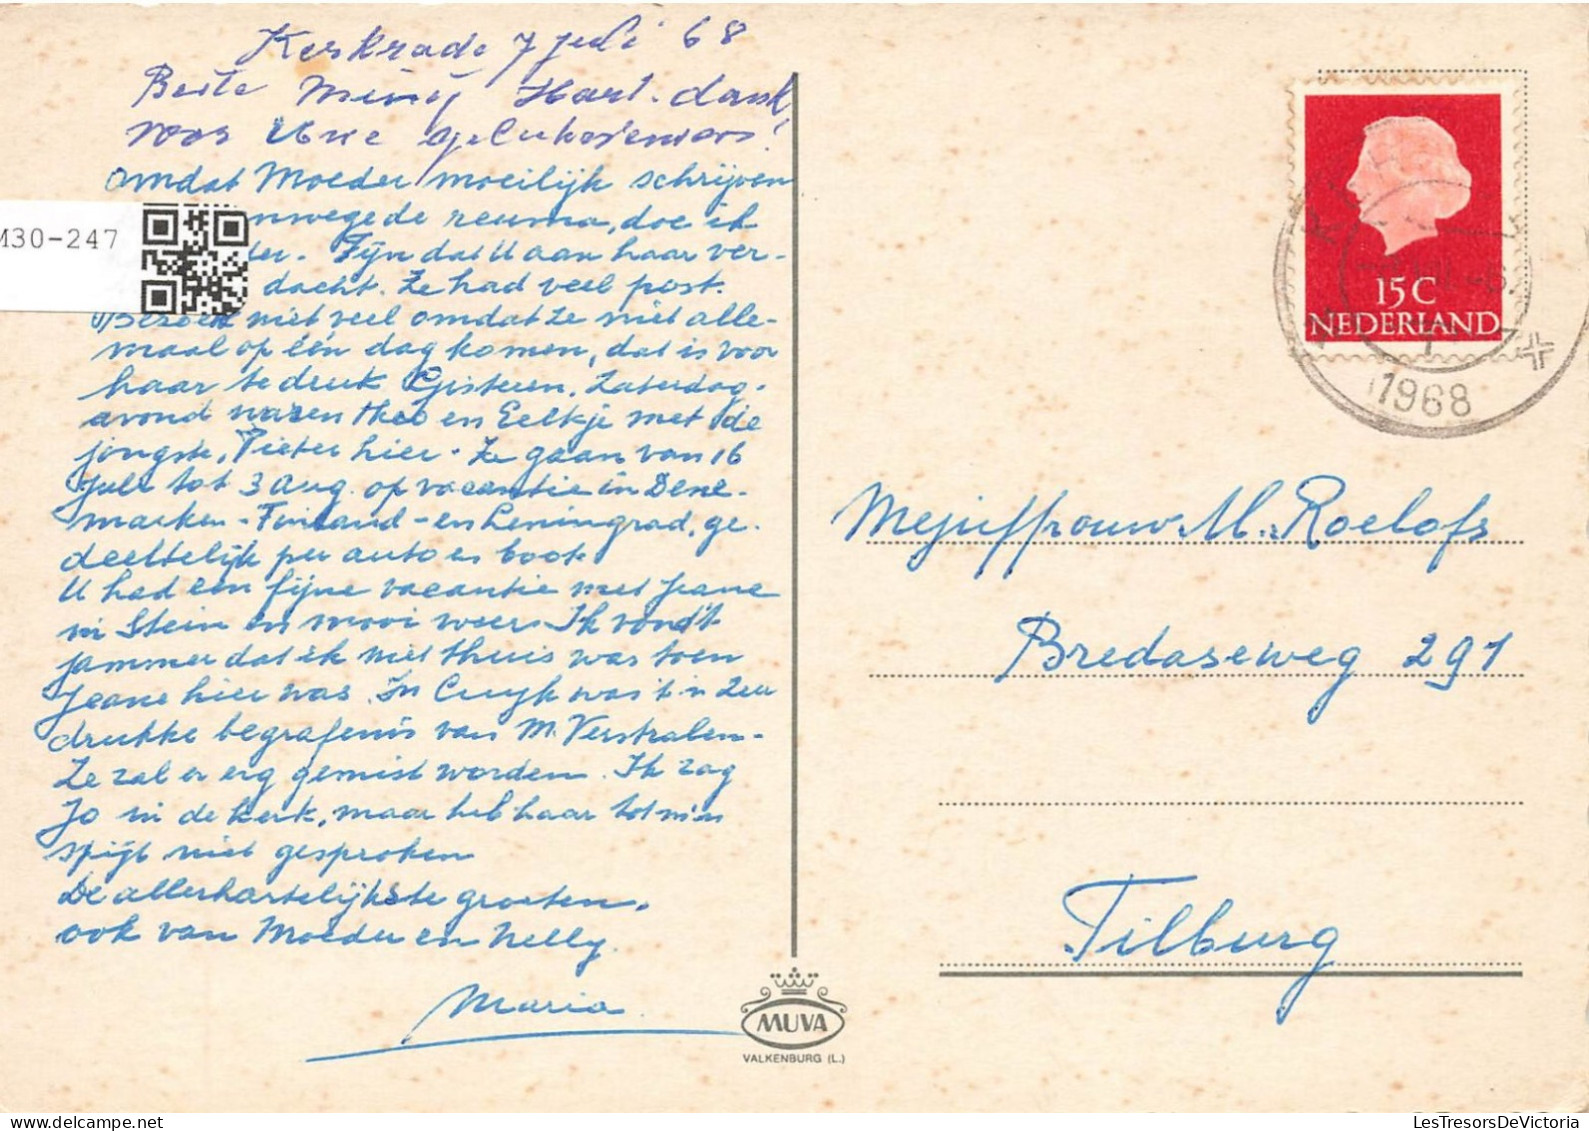 Kerkrade 7 juli 68
Beste Mieny Hart. dank
voor Uwe gelukwensen!
Omdat Moeder moeilijk schrijven
nwege de reuma, doe ik
der. Fijn dat U aan haar ver-
dacht. Ze had veel post.
Bezoek niet veel omdat ze niet alle-
maal op één dag komen, dat is voor
haar te druk. Gisteren, Zaterdag-
avond waren Theo en Eelkje met de
jongste, Pieter hier. Ze gaan van 16
Juli tot 3 Aug. op vacantie in Dene-
marken - Finland - en Leningrad, ge-
deeltelijk per auto en boot.
U had een fijne vacantie met Jeane
in Stein en mooi weer. Ik vond 't
jammer dat ik niet thuis was toen
Jeane hier was. In Cuyk was 't 'n zeer
drukke begrafenis van M. Verstralen.
Ze zal er erg gemist worden. Ik zag
Jo in de kerk, maar heb haar tot m'n
spijt niet gesproken
De allerhartelijkste groeten,
ook van Moeder en Nelly.
Maria
M30-247
15 C
NEDERLAND
1968
Mejuffrouw M. Roelofs
Bredaseweg 291
Tilburg
MUVA
VALKENBURG (L.)
LesTresorsDeVictoria